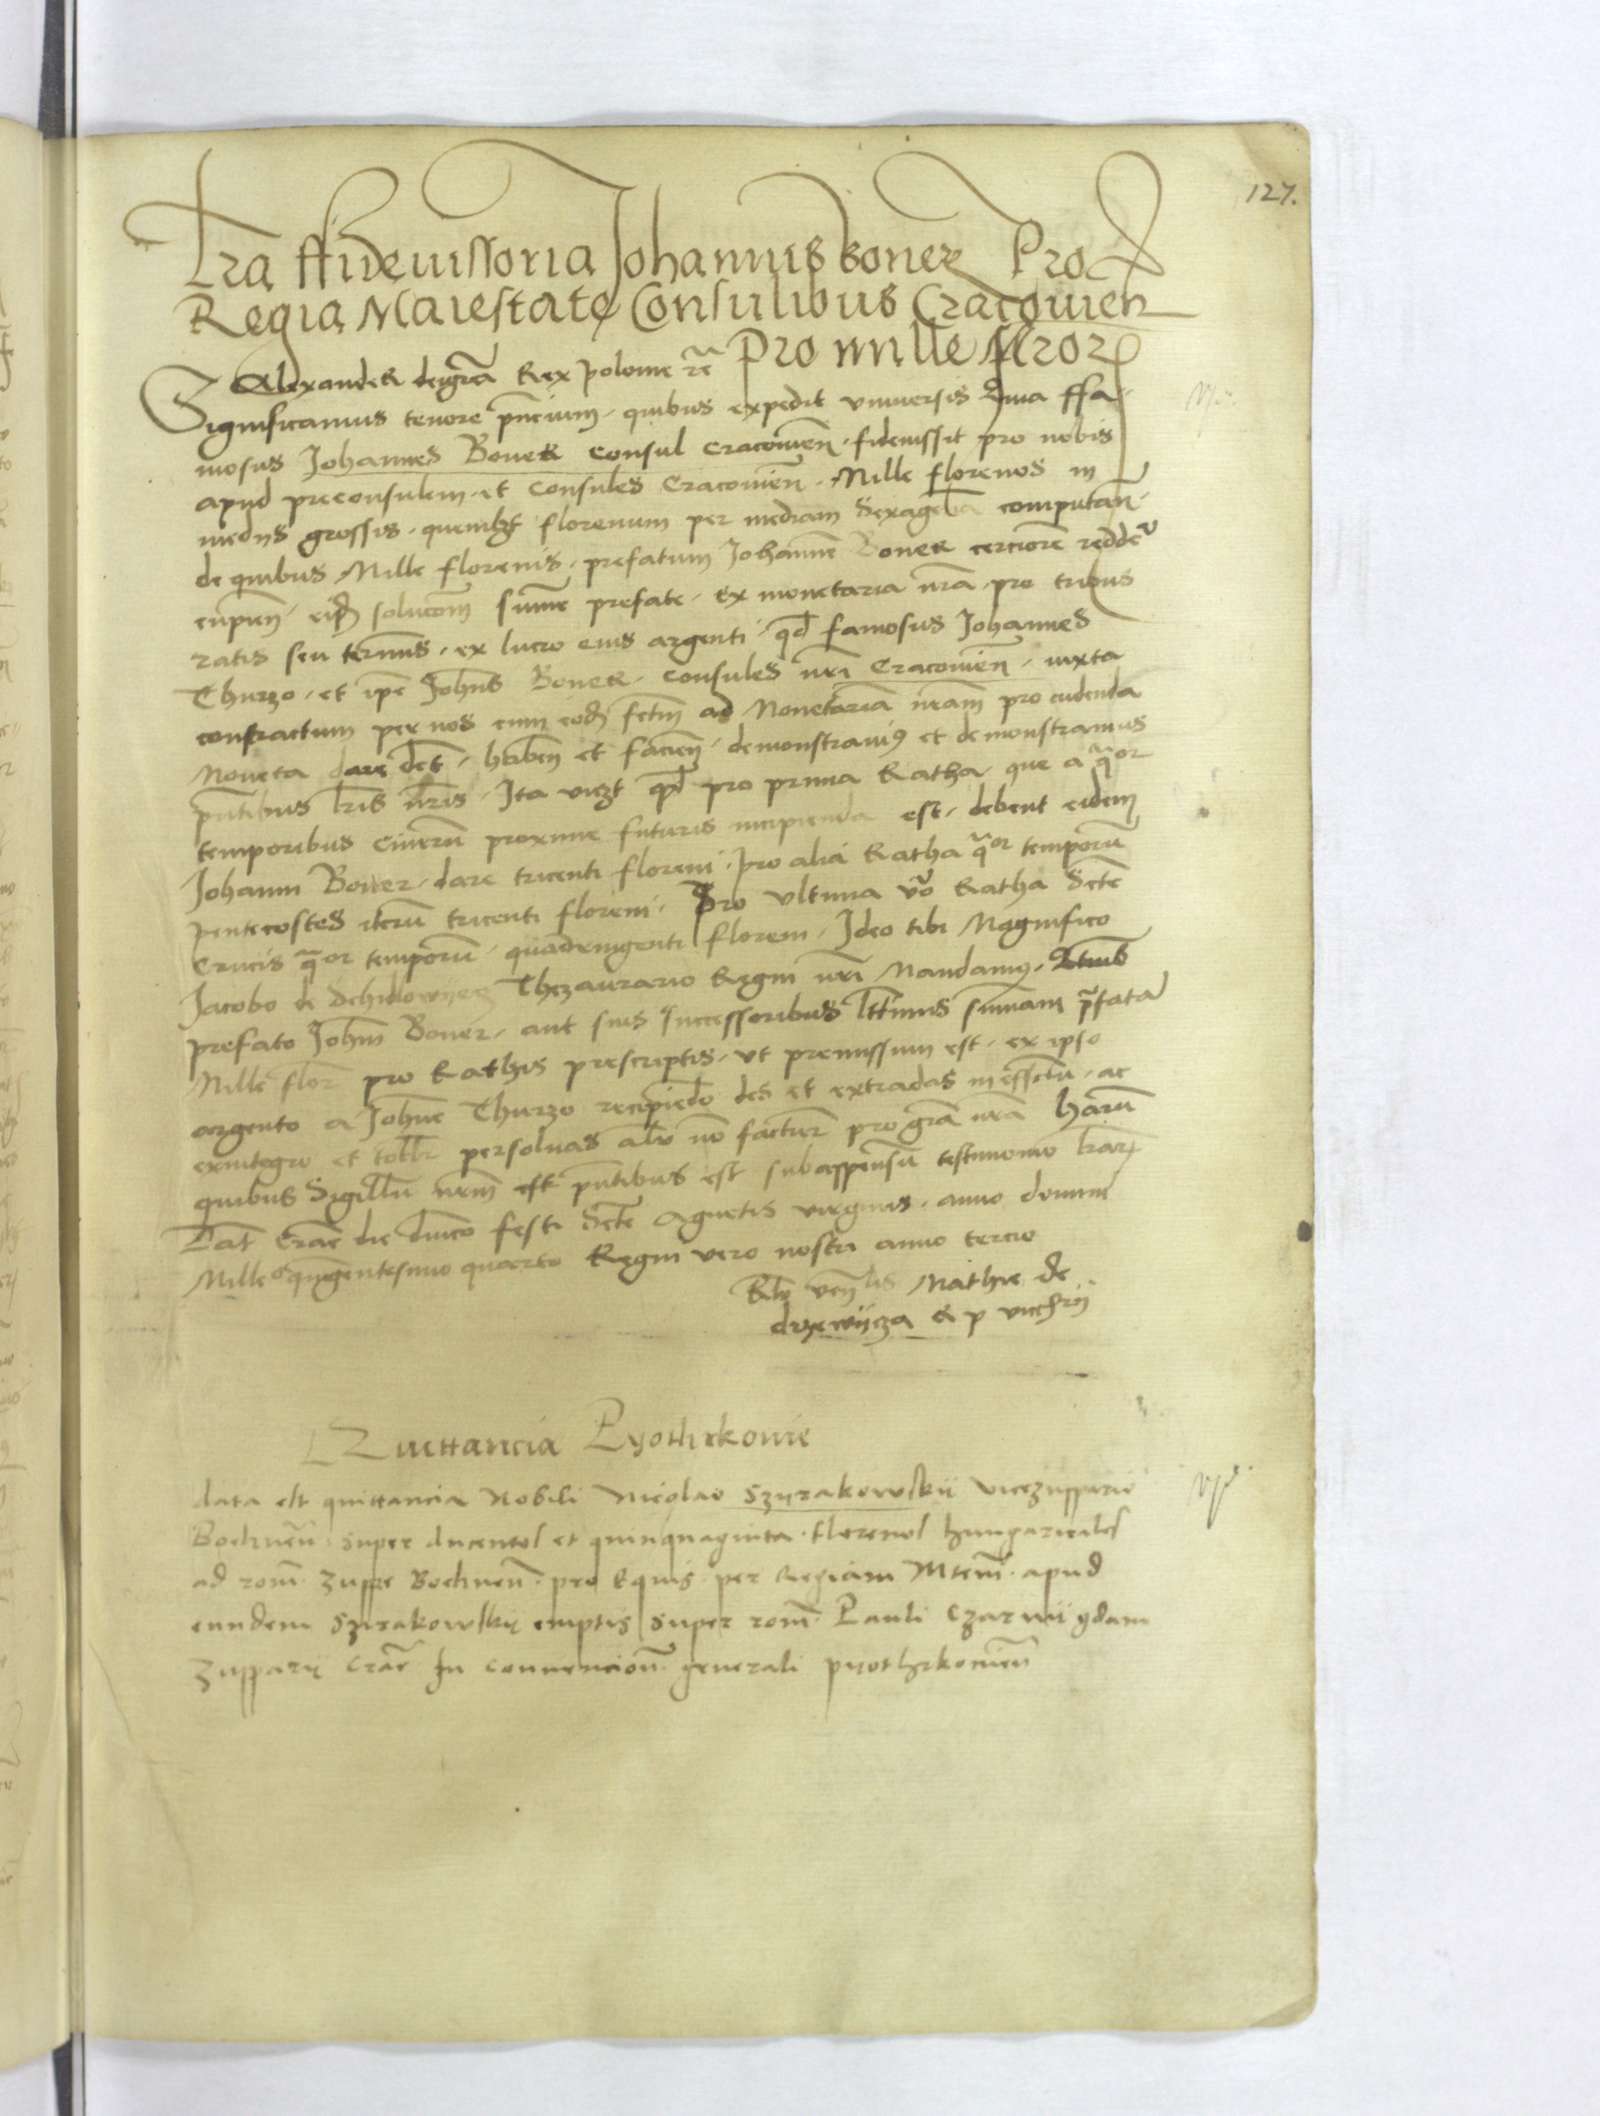 127.
Lra ffideiussoria Johannis boner Pro
Regia Maiestate Consulibus Cracouien
Pro mille flror
Alexander dei gra Rex polonie rc
Significamus tenore pncium quibus expedit vniuersis Quia ffa-
mosus Johannes Boner consul cracouien fideiussit pro nobis
apud preconsulem et consules Cracouien Mille florenos in
medijs grossis quemlzt florenum per mediam Sexagena computan
de quibus Mille florenis prefatum Johanne Boner cerciore redde
cupien eidem solucom summe prefate ex monetaria nra pro tribus
ratis seu terminis ex lucro eius argenti qd famosus Johannes
Thurzo et ipe Johns Boner consules nri Cracouien iuxta
contractum per nos cum eodem fctm ad Monetariam nram pro cudenda
Moneta dare debet haben et facien demonstrauimus et demonstramus
pntibus lris nris Ita viczt qd pro prima Ratha que a quatuor
temporibus cinerum proxime futuris incipienda est debent eidem
Johanni Boner dare tricenti floreni pro alia Ratha quatuor temporum
pentecostes iterum tricenti floreni Pro vltima vero Ratha Scte
Crucis quatuor temporum quadringenti floreni Ideo tibi Magnifico
Jacobo de Schidlowyecz Thezaurario Regni nri Mandamus
prefato Johni Boner aut suis Successoribus lttimis summam prefatam
Mille flor pro Rathis prescriptis vt premissum est ex ipso
argento a Johne Thurzo recipiendo des et extradas in effectu ac
exintegro et totlr persoluas aliud non facturus pro gra nra harum
quibus Sigillum nrum est pntibus est subappensum testimonio lrar
Dat Crac die dnico festi Scte Agnetis virginis anno domini
Millo quingentesimo quarto Regni vero nostri anno tercio
Rlo venlis Mathie de
drzewijcza R p vicecancrij
Quittancia Pyothrkowie
data est quittancia Nobili Nicolao Szyrakowskij vicezuppario
Bochnen super ducentos et quinquaginta florenos hungaricales
ad ronem zuppe Bochnen pro Equis per Regiam Mtem apud
eundem Szyrakowskij emptis super ronem Pauli Czarnij qdam
zupparij Crac In conuencione generali pyothrkouien